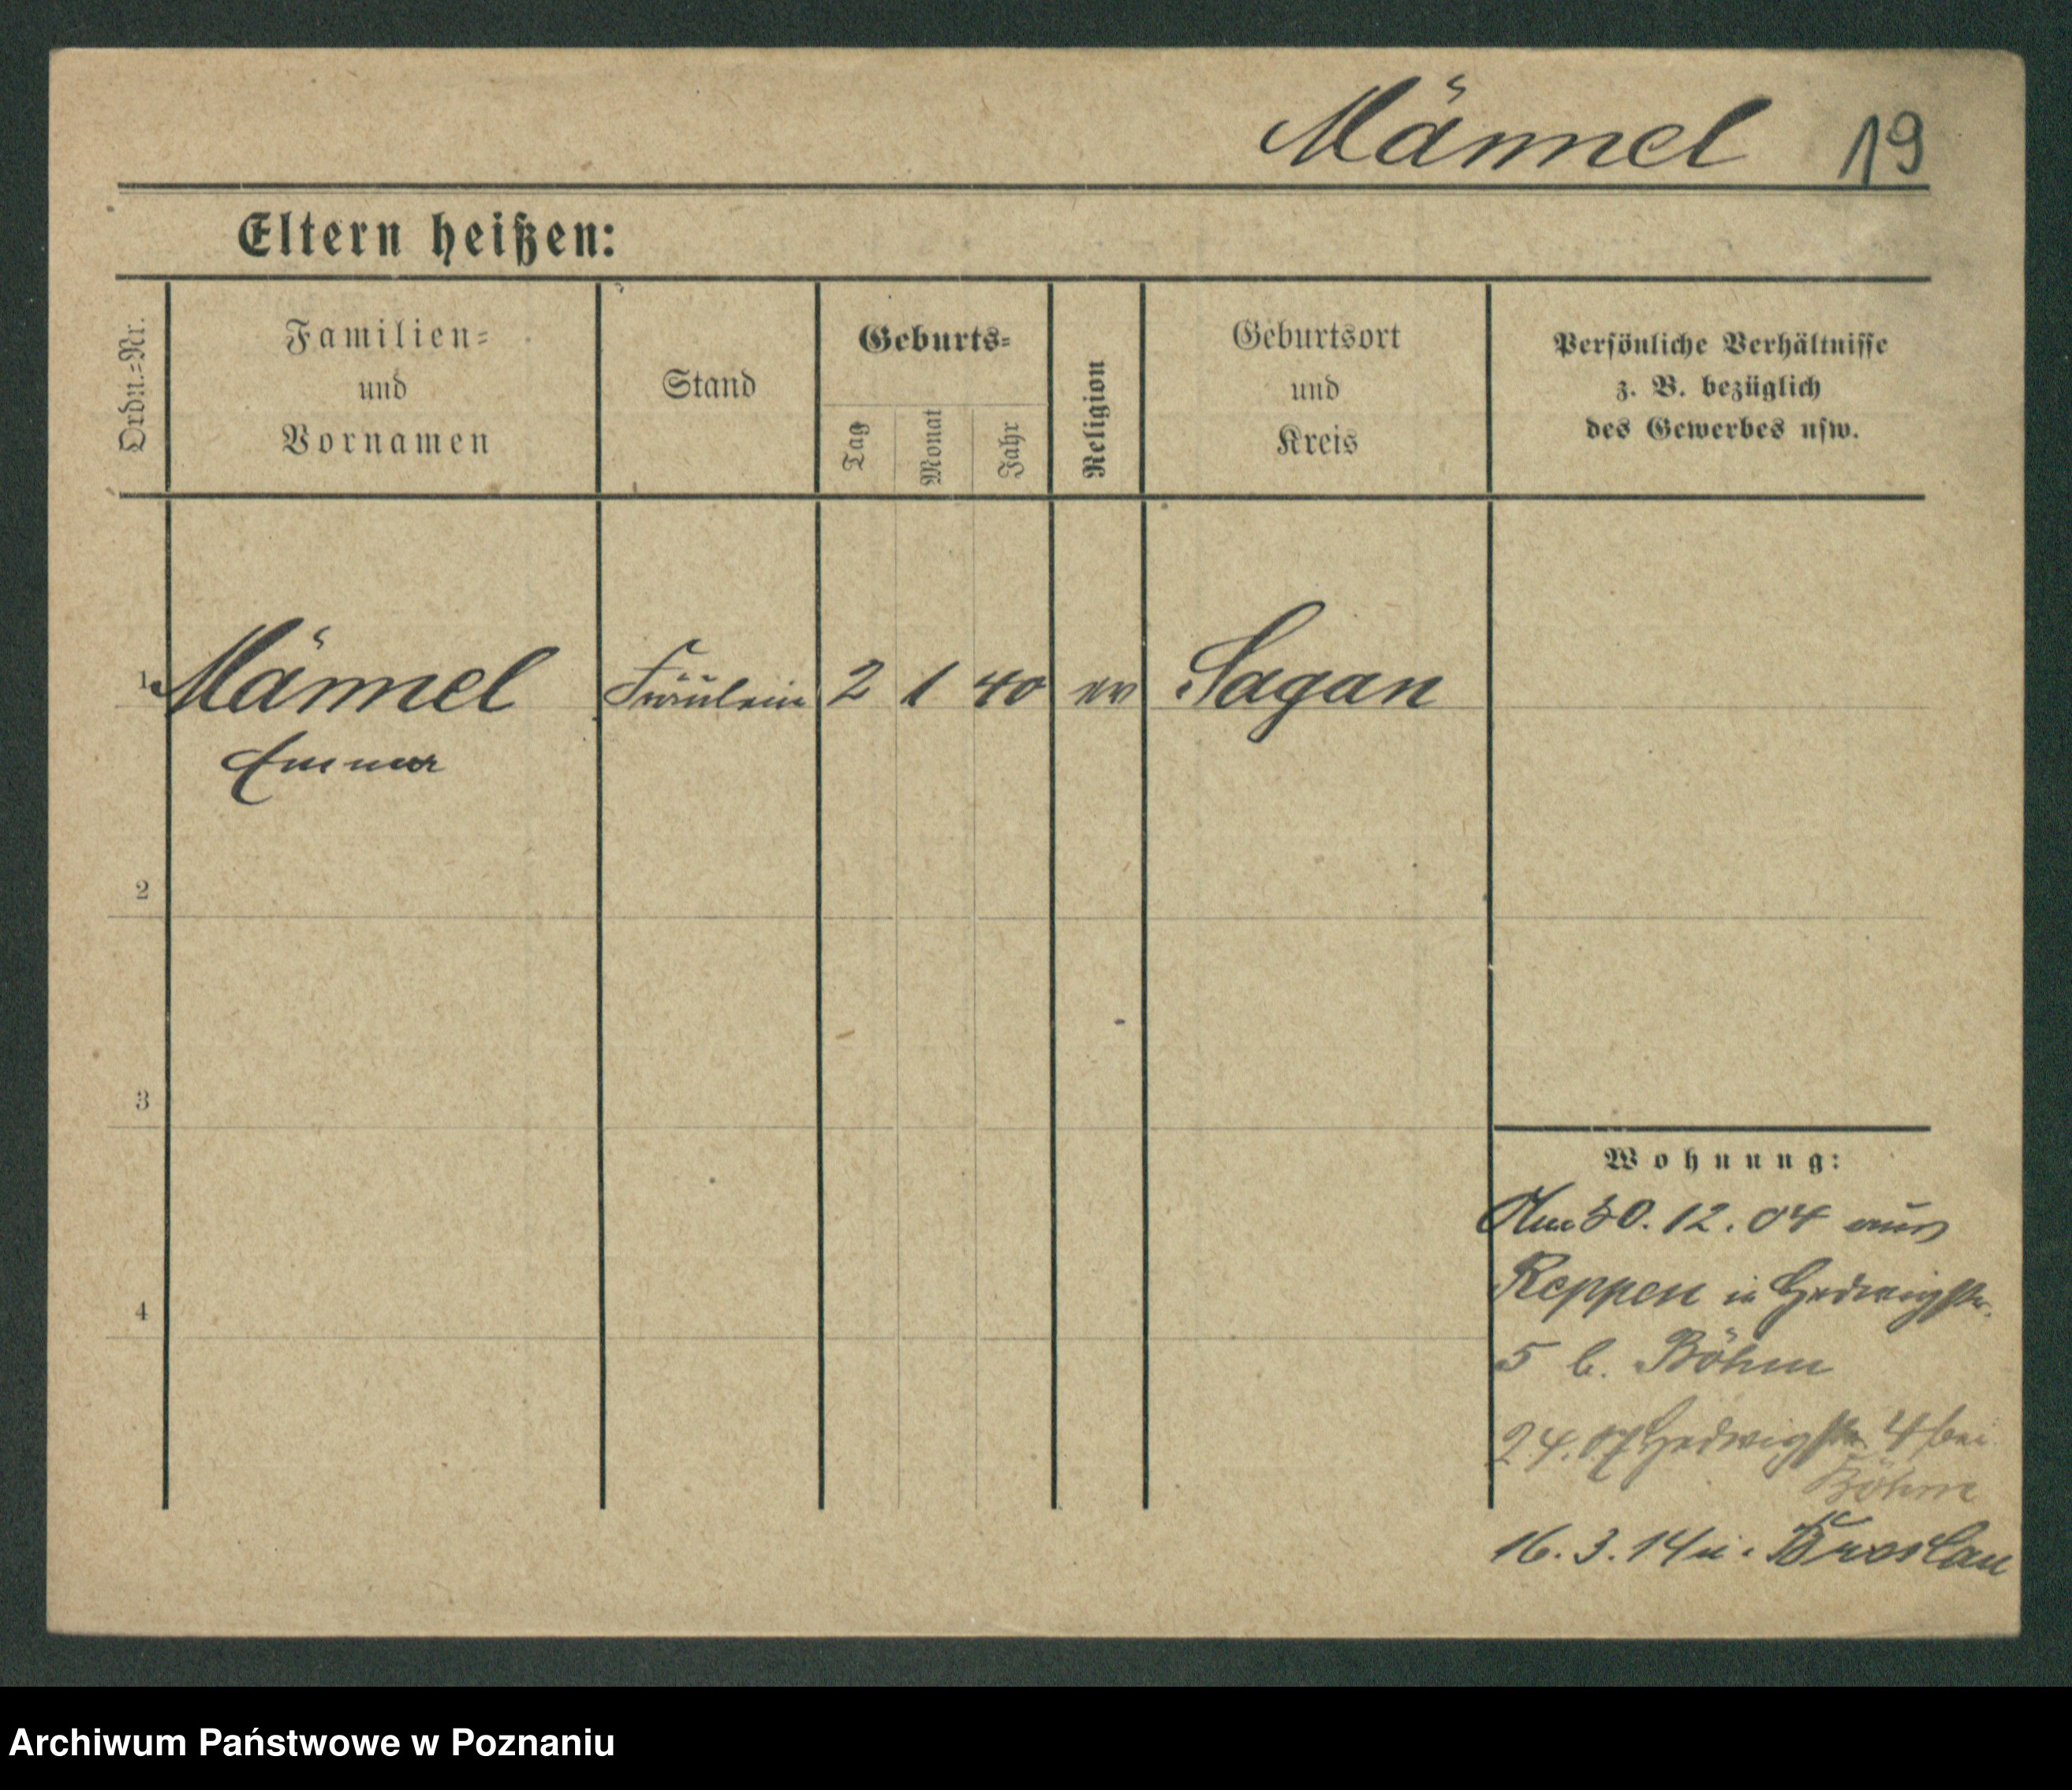 Männel 19
Eltern heißen:
Ordn.-Nr.
Familien-
und
Vornamen
Stand
Geburts-
Tag
Monat
Jahr
Religion
Geburtsort
und
Kreis
Persönliche Verhältnisse
z. B. bezüglich
des Gewerbes usw.
1 Männel Fräulein 2 1 40 ev Sagan
Emma
2
3
4
Wohnung:
Am 30.12.04 aus
Reppen in Hedwigstr.
5 b. Böhm
Hedwigstr 4 bei
Böhm
16.3.14 n. Breslau
Archiwum Państwowe w Poznaniu